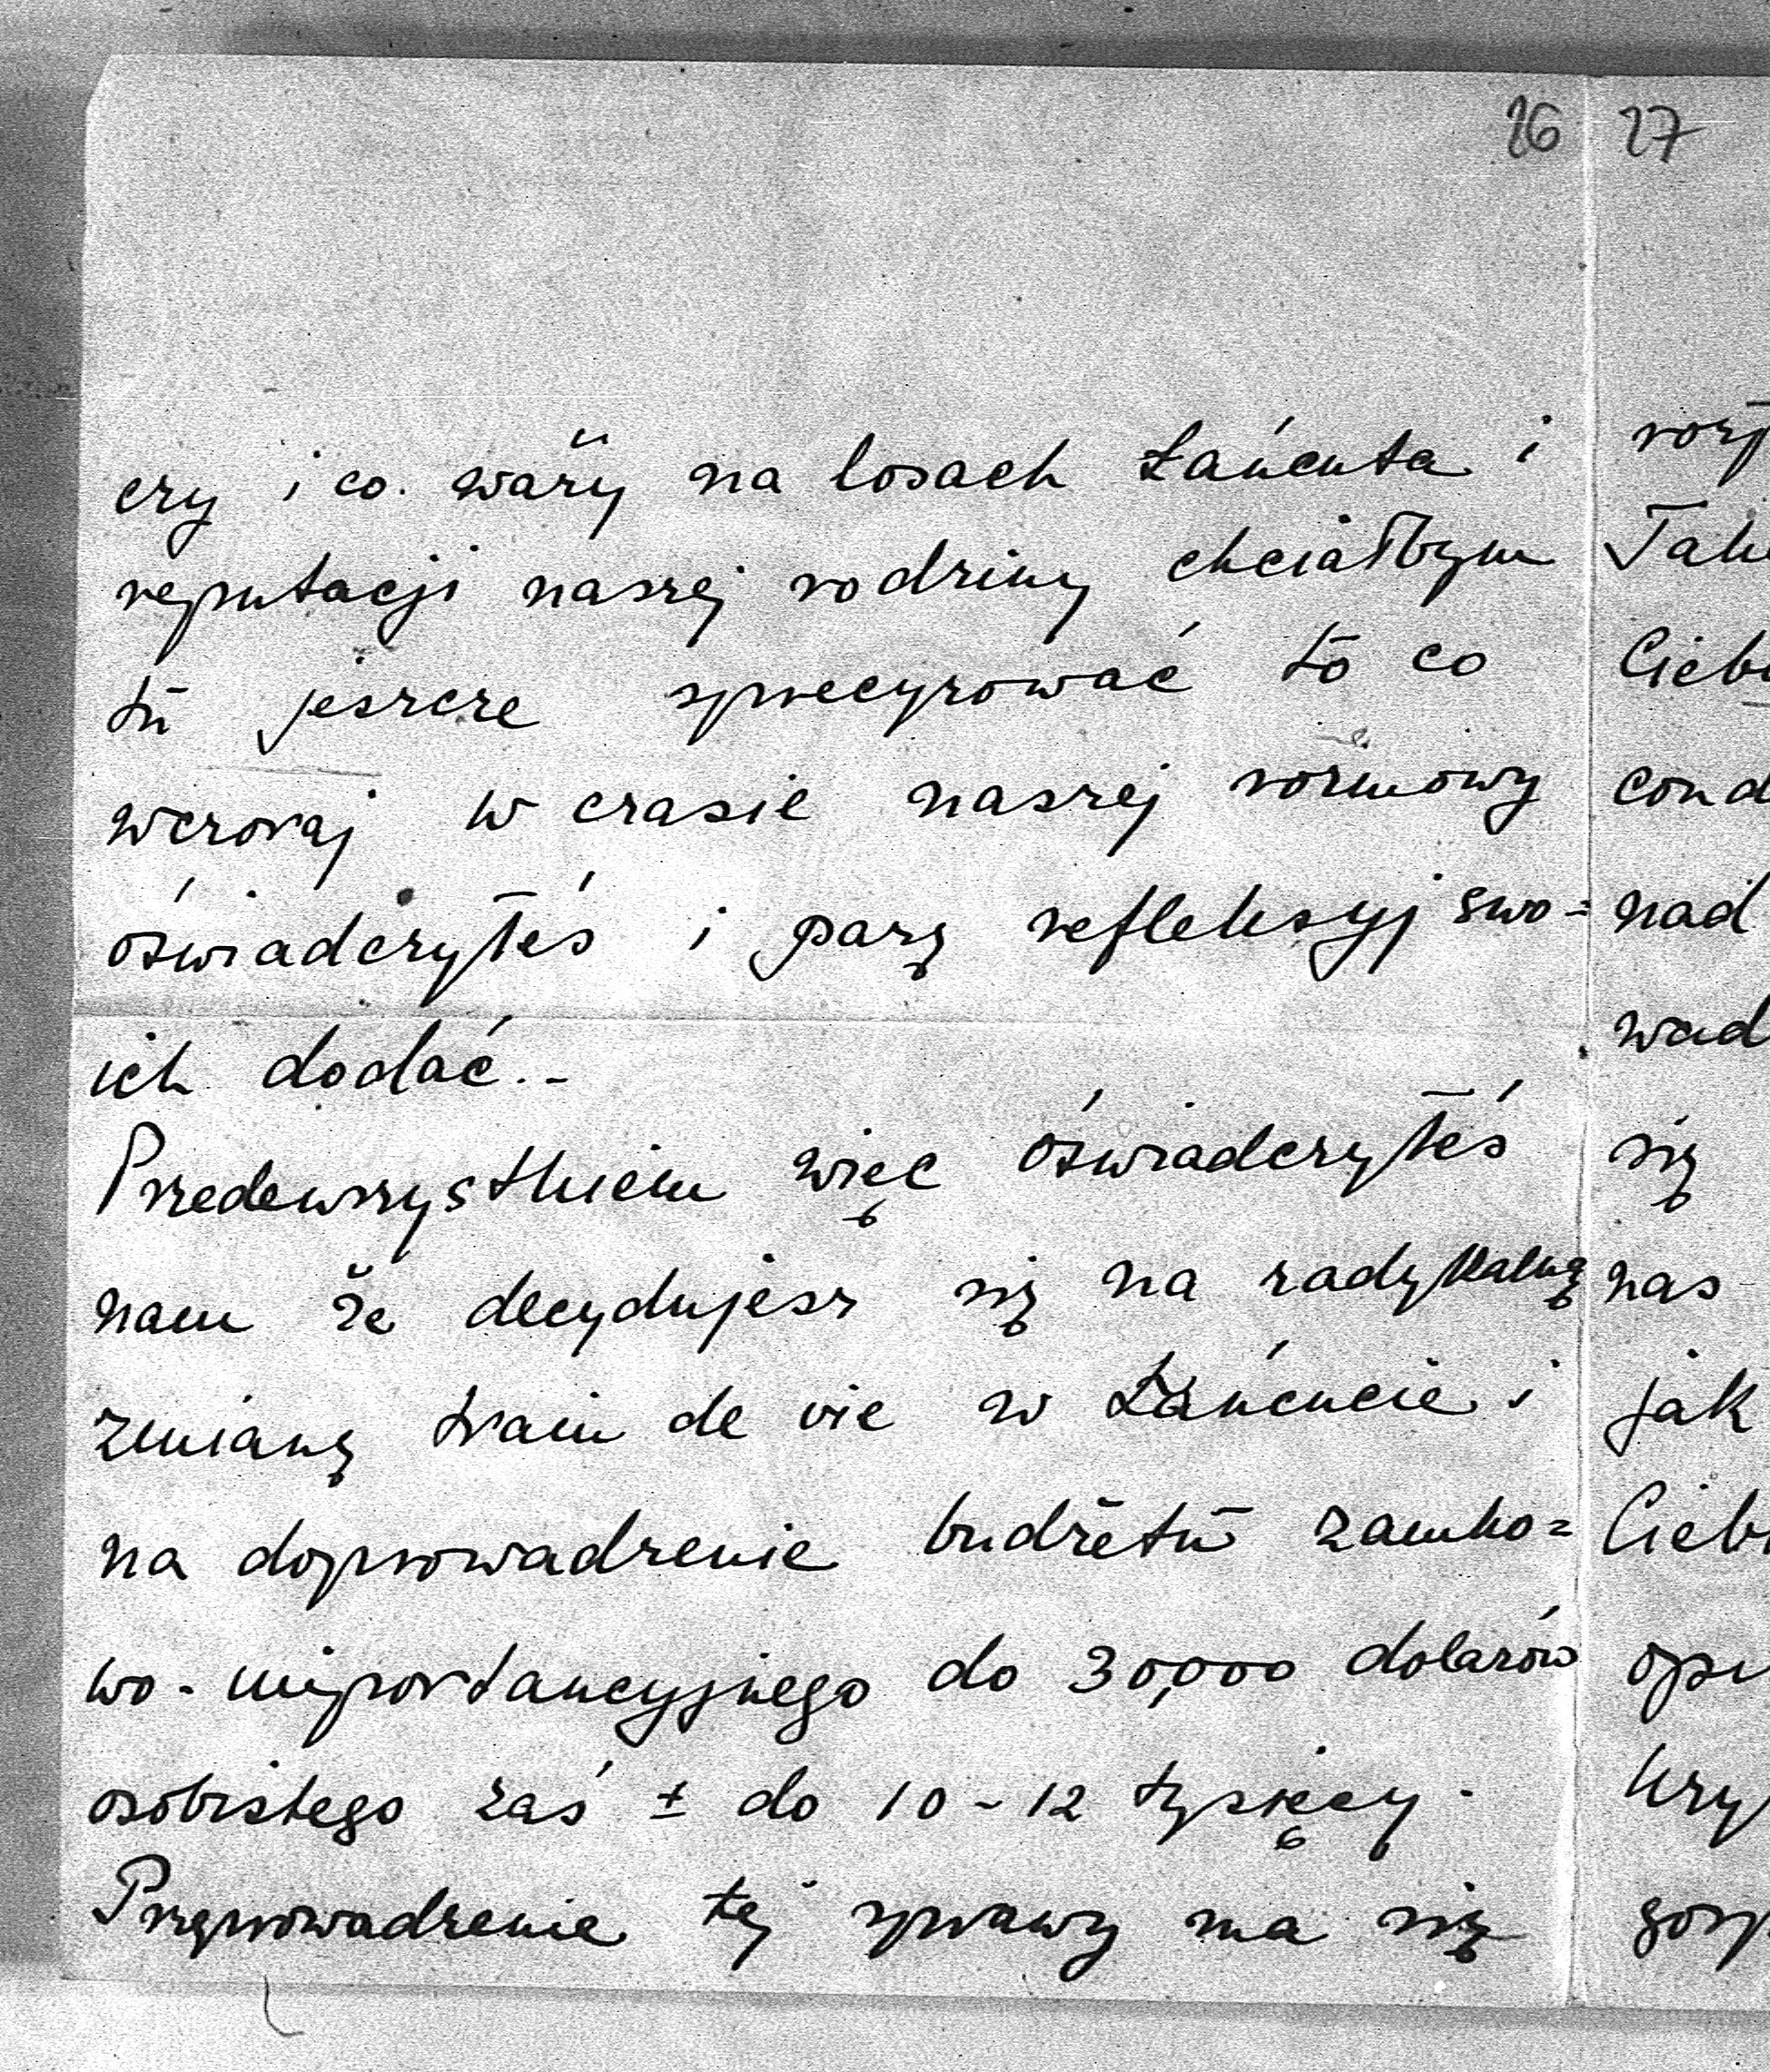 26 27
czy i co waży na losach Łańcuta i
reputacji naszej rodziny chciałbym
tu jeszcze sprecyzować to co
wczoraj w czasie naszej rozmowy
oświadczyłeś i parę refleksyj swo=
ich dodać.-
Przedewszystkiem więc oświadczyłeś
nam że decydujesz się na radykalną
zmianę train de vie w Łańcucie i
na doprowadzenie budżetu zamko=
wo-
do 30,000 dolarów
osobistego zaś ± do 10-12 tysięcy.
Przeprowadzenie tej sprawy ma się
nad
się
nas
jak